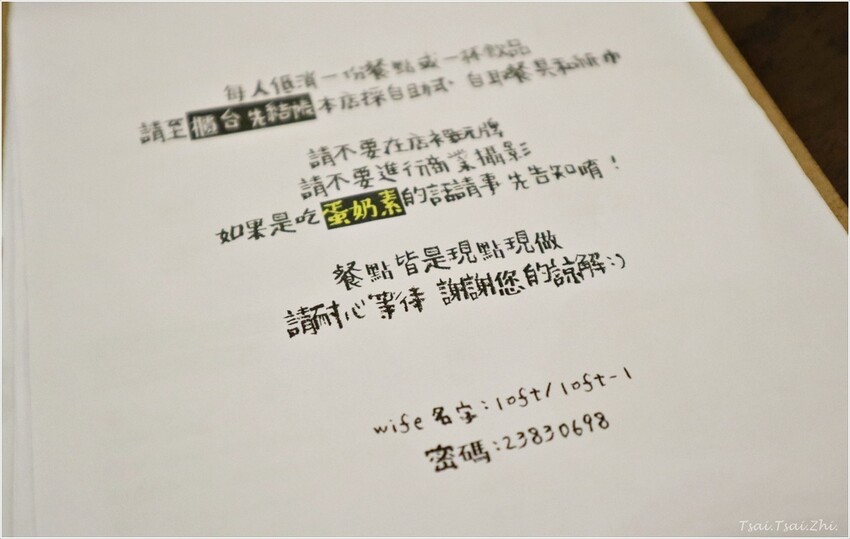 每人低消一份餐點或一杯飲品
請至櫃台先結帳 本店採自助式、自取餐具和紙巾
請不要在店裡玩牌
請不要進行商業攝影
如果是吃蛋奶素的話請事先告知唷！
餐點皆是現點現做
請耐心等待 謝謝您的諒解:)
wife 名字:loft/loft-1
密碼:23830698
Tsai.Tsai.Zhi.